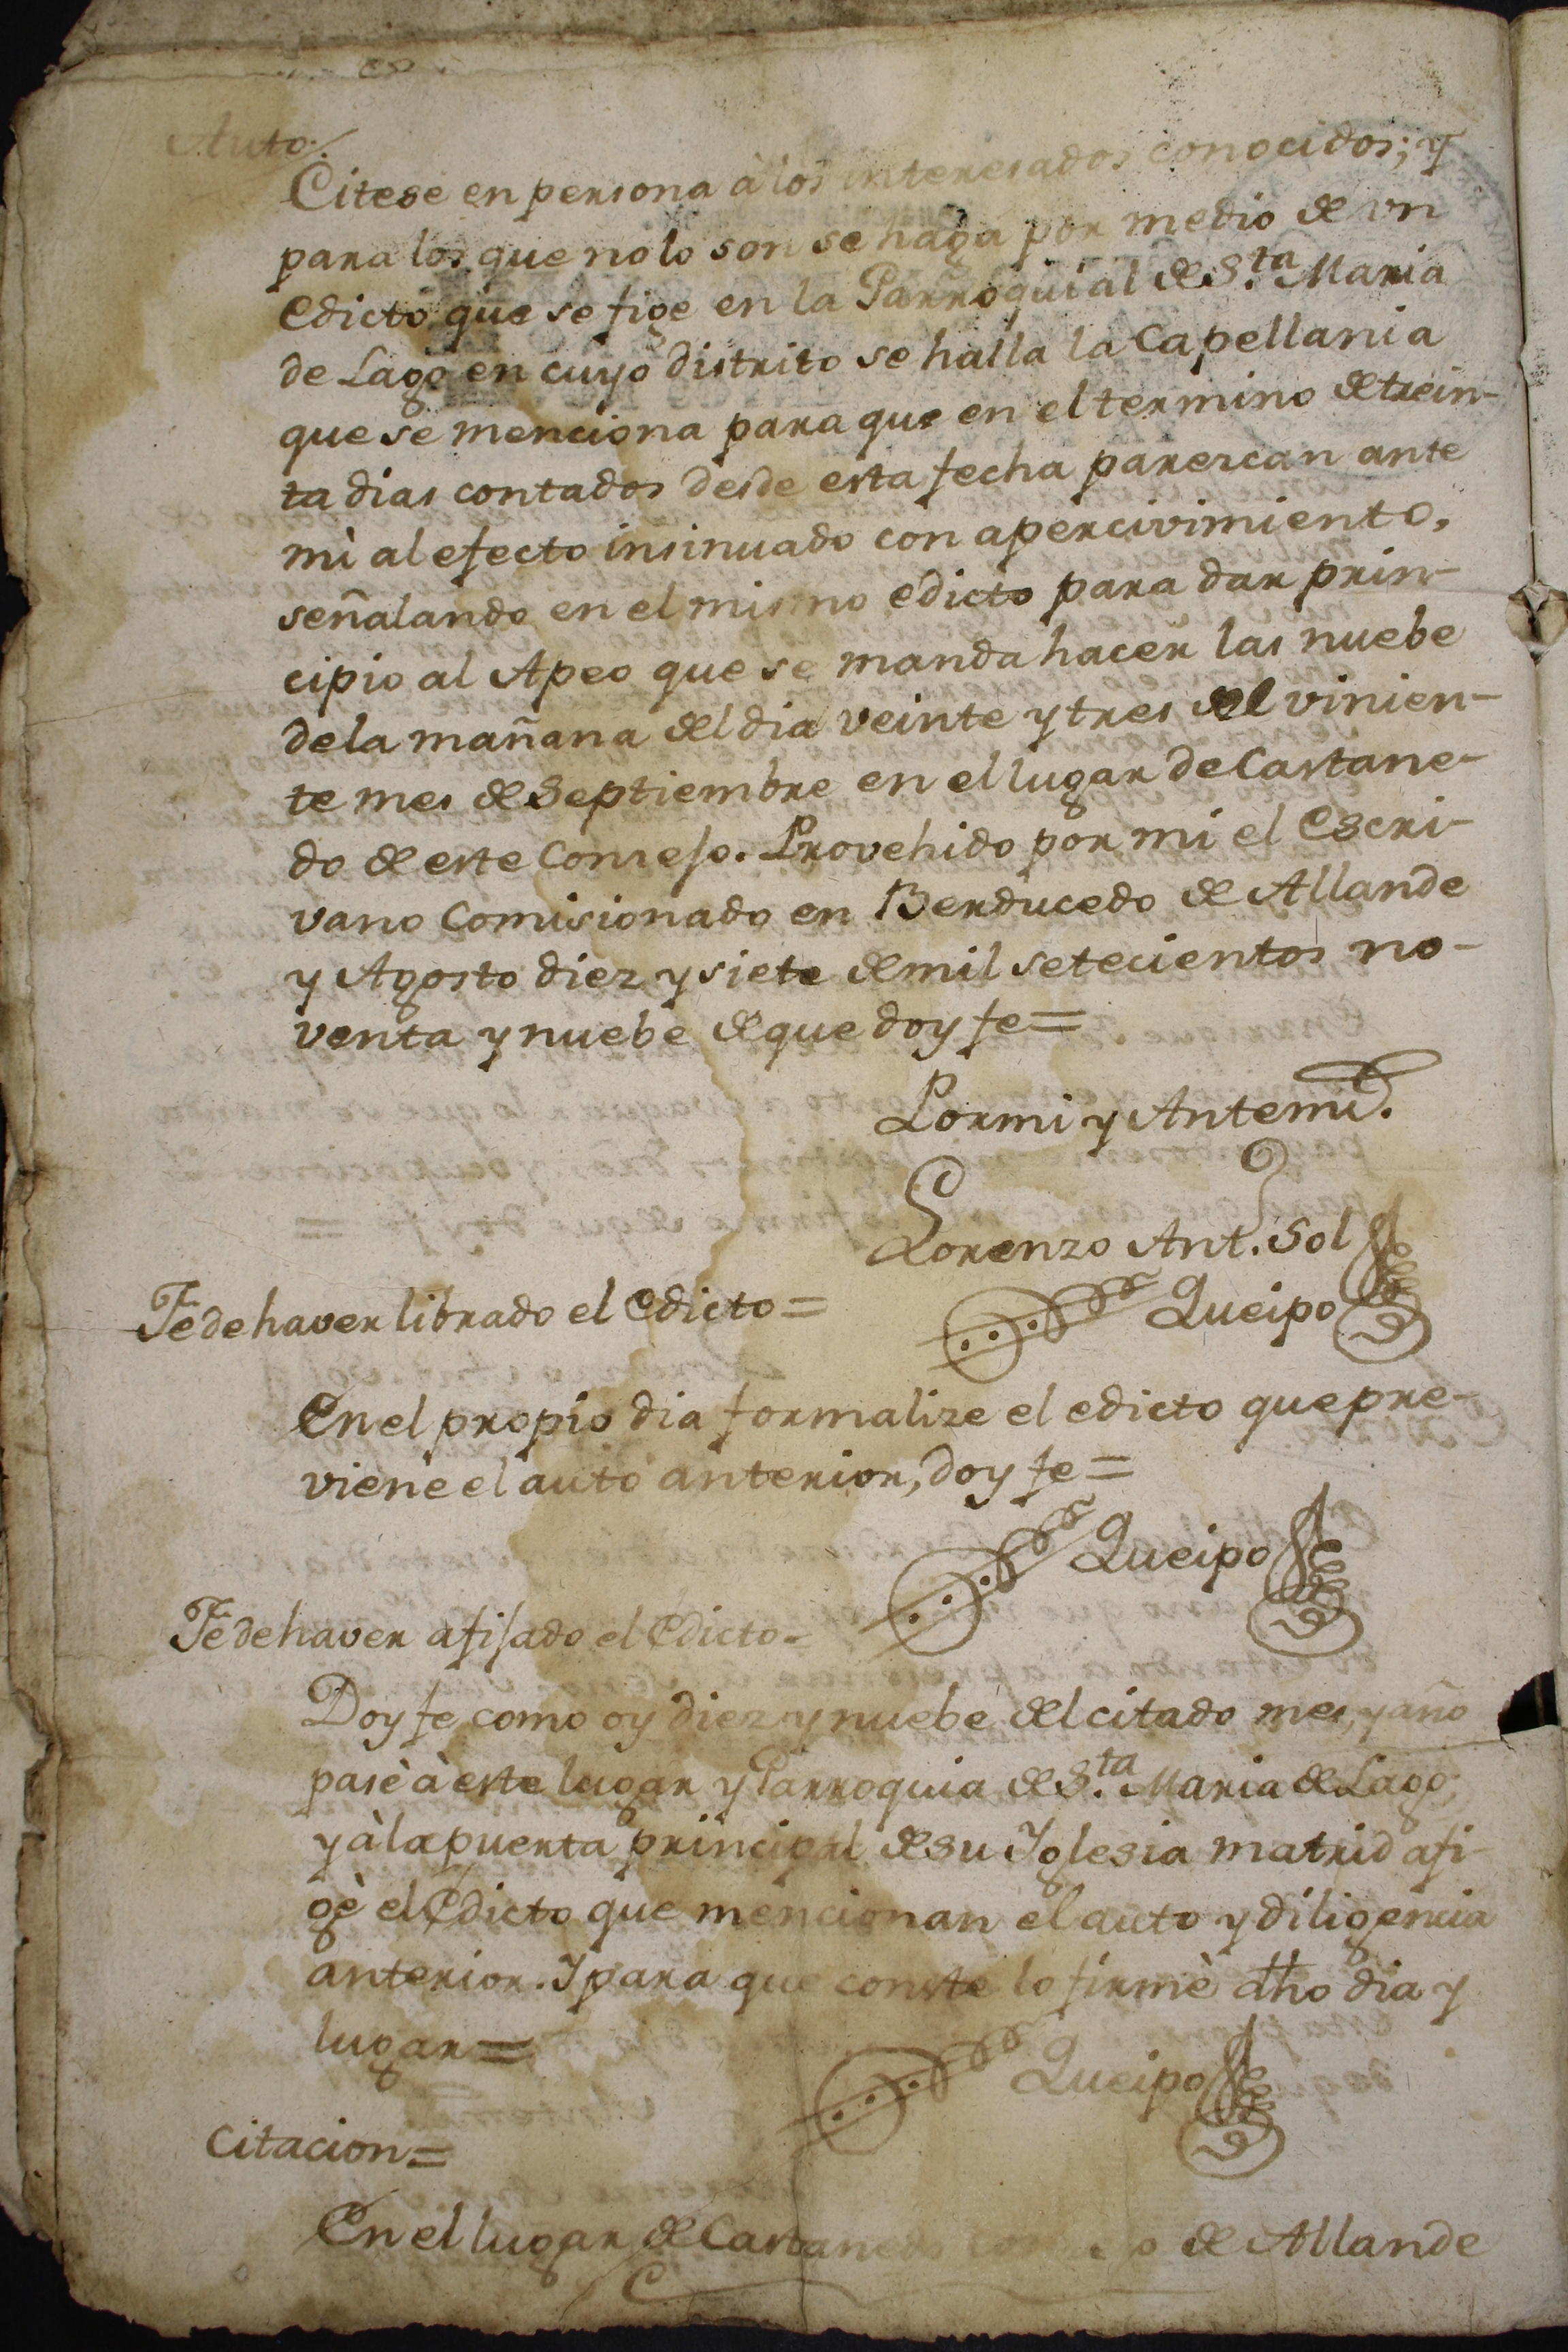 Auto.
Citese en persona à los interesados conocidos; y
para los que no lo son se haga por medio de un
Edicto que se fige en la Parroquial de S.ta Maria
de Lago en cuyo distrito se halla la Capellania
que se menciona para que en el termino de trein-
ta dias contados desde esta fecha parezcan ante
mi al efecto insinuado con apercivimiento,
señalando en el mismo edicto para dar prin-
cipio al Apeo que se manda hacer las nuebe
de la mañana del dia veinte y tres del vinien-
te mes de Septiembre en el lugar de Castane-
do de este Consejo. Provehido por mi el Escri-
vano Comisionado en Berducedo de Allande
y Agosto diez y siete de mil setecientos no-
venta y nuebe de que doy fe=
Por mi y Antemi.
Lorenzo Ant. Sol
Queipo
Fe de haver librado el Edicto=
En el propio dia formalize el edicto que pre-
viene el auto anterior, doy fe=
Queipo
Fe de haver afijado el Edicto=
Doy fe como oy diez y nuebe del citado mes, y año
pasè à este lugar y Parroquia de S.ta Maria de Lago,
y à la puerta principal de su Yglesia matrid afi-
gè el Edicto que mencionan el auto y diligencia
anterior. Y para que conste lo firmè dho dia y
lugar=
Queipo
Citacion=
En el lugar de Castanedo de Allande